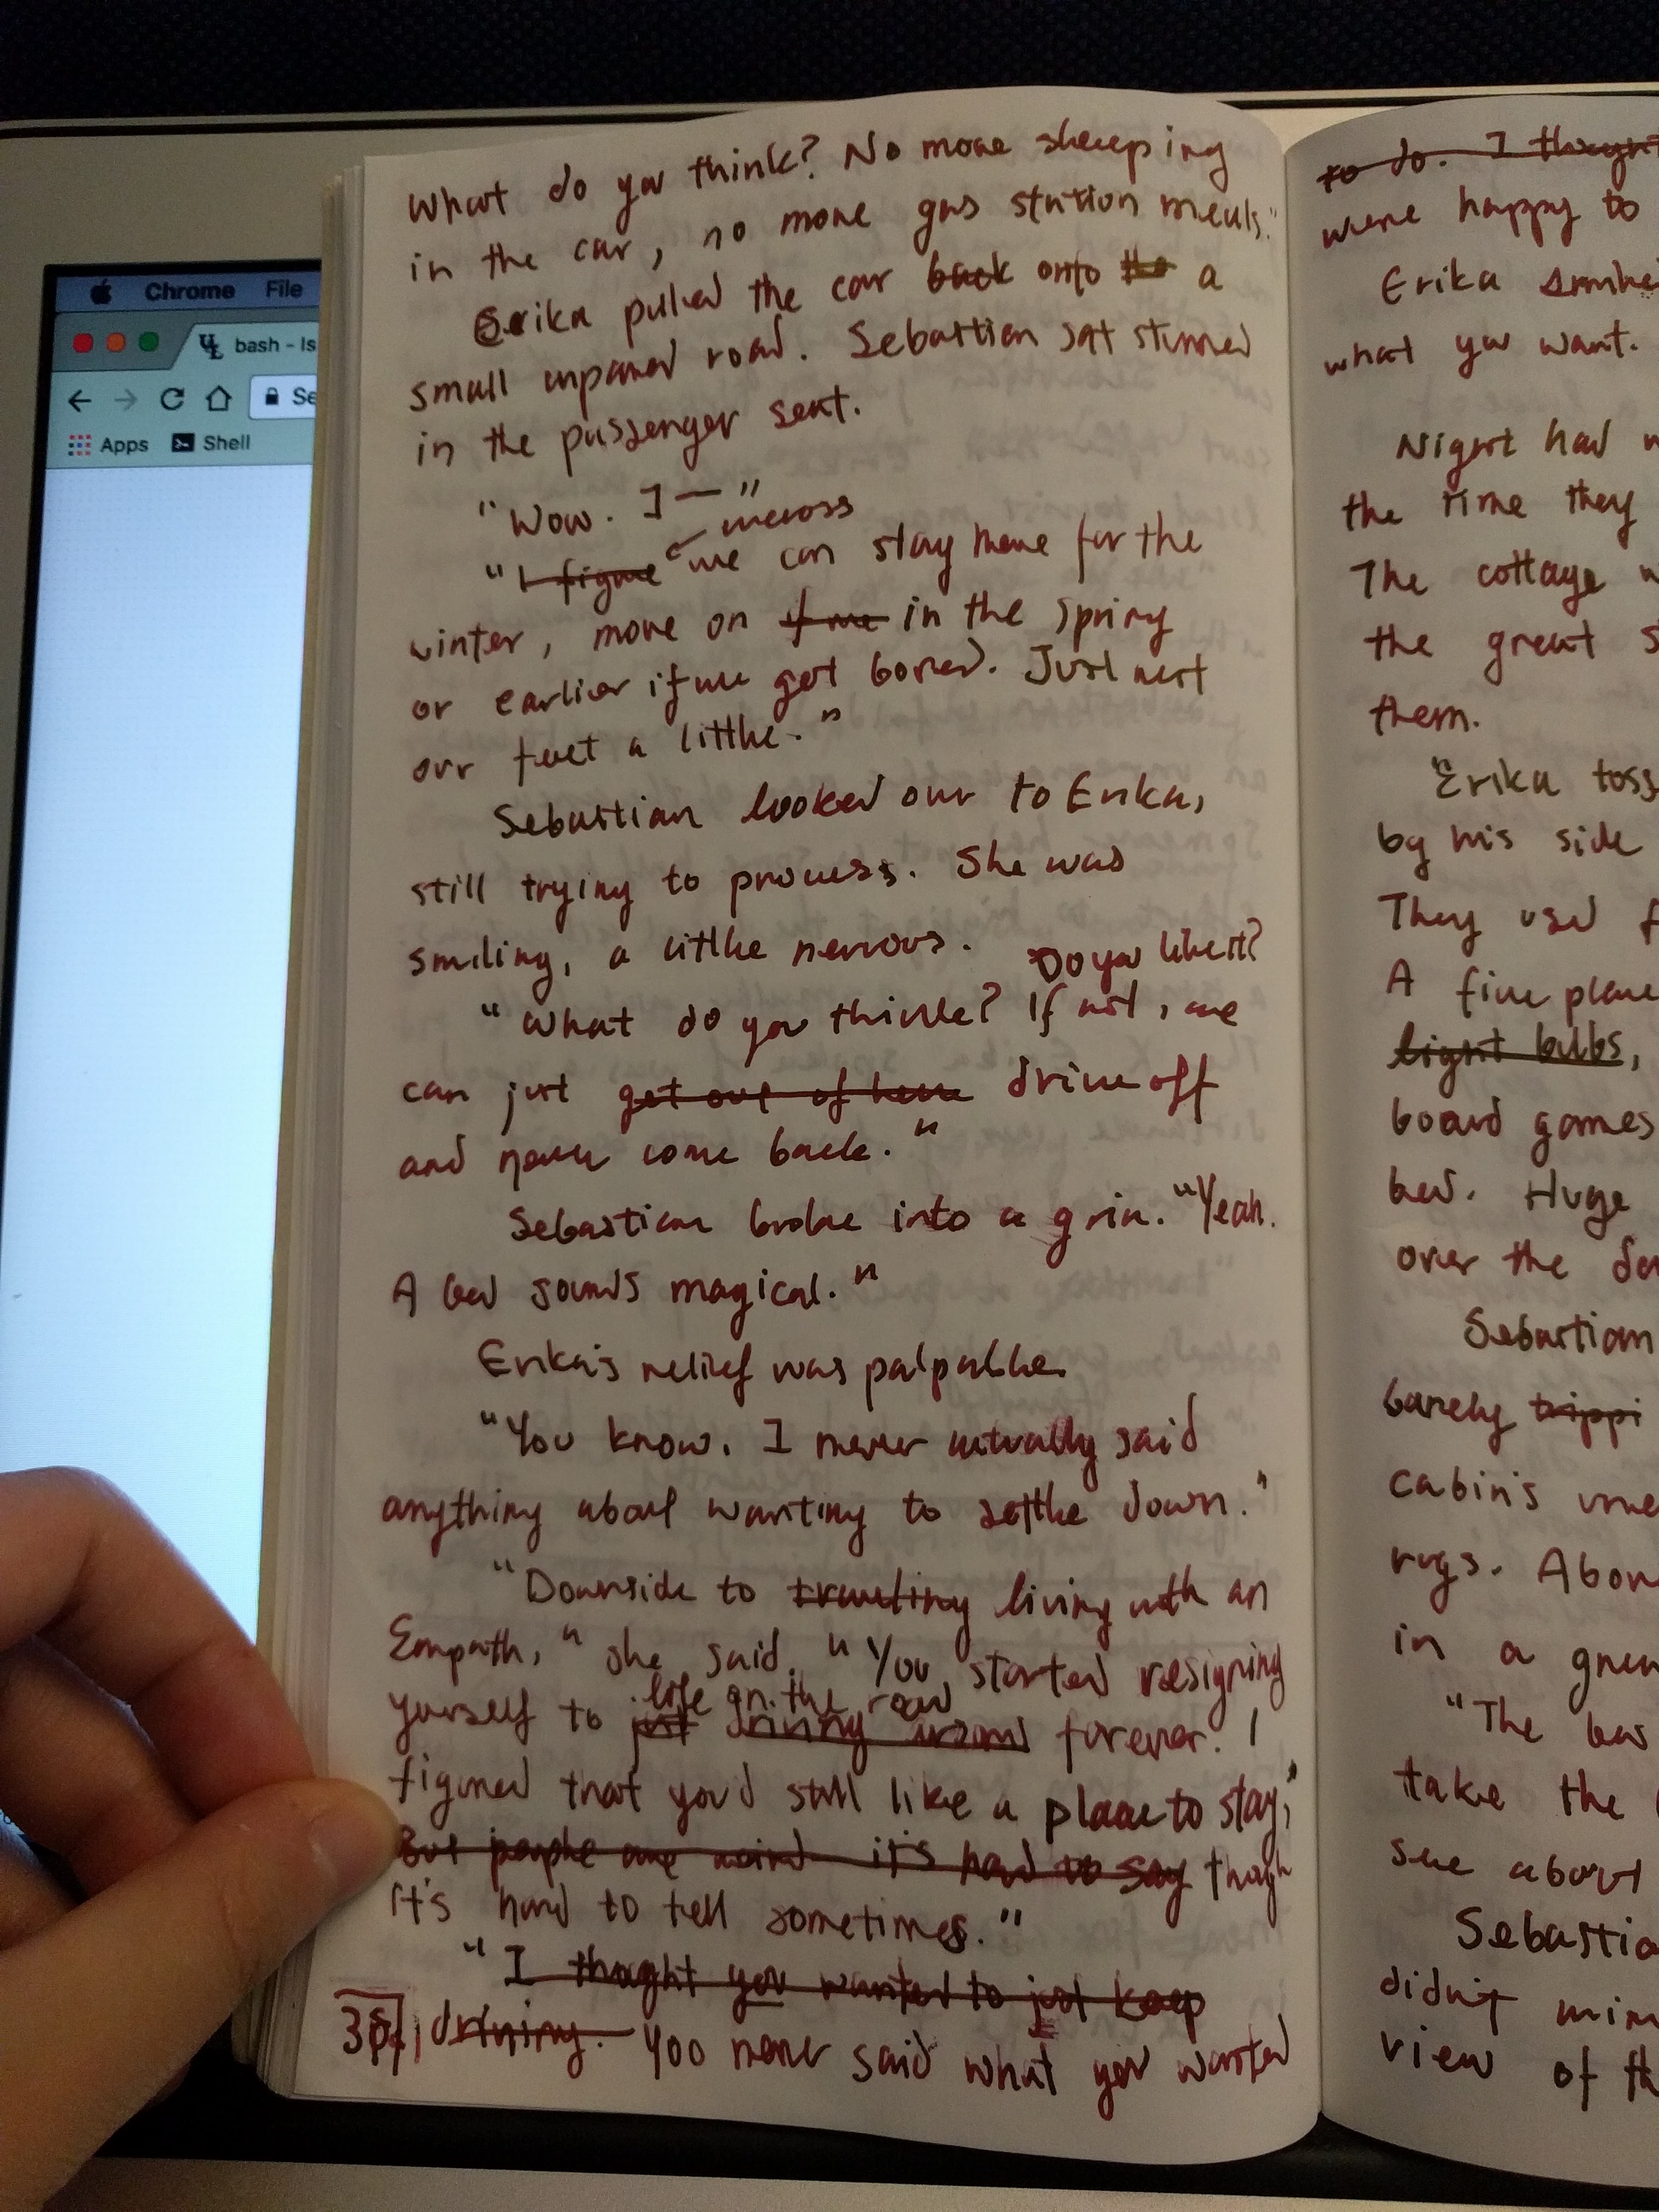 Chrome File
bash - Is
Se
Apps Shell
What do you think? No more sleeping
in the car, no more gas station meals."
Erika pulled the car back onto the a
small unpaved road. Sebastian sat stunned
in the passenger seat.
"Wow. I—"
"I figure we can stay here for the
winter, move on if we in the spring
or earlier if we get bored. Just rest
our feet a little."
Sebastian looked over to Erika,
still trying to process. She was
smiling, a little nervous.
Do you like it?
"What do you think? If not, we
can just get out of here drive off
and never come back."
Sebastian broke into a grin. "Yeah.
A bed sounds magical."
Erika's relief was palpable.
"You know, I never actually said
anything about wanting to settle down."
"Downside to traveling living with an
Empath," she said. "You started resigning
life on the road
yourself to just driving around forever. I
figured that you'd still like a place to stay,"
But people are weird it's hard to say though
it's hard to tell sometimes."
"I thought you wanted to just keep
driving. You never said what you wanted
to do. I thought
were happy to
Erika
what you want.
Night had
the time they
The cottage
the great
them.
Erika toss
by his side
They used f
A fine place
light bulbs,
board games
bed. Huge
over the
Sebastian
barely trippi
cabin's
rugs. Above
in a
"The bed
take the
see about
Sebastia
didn't min
view of th